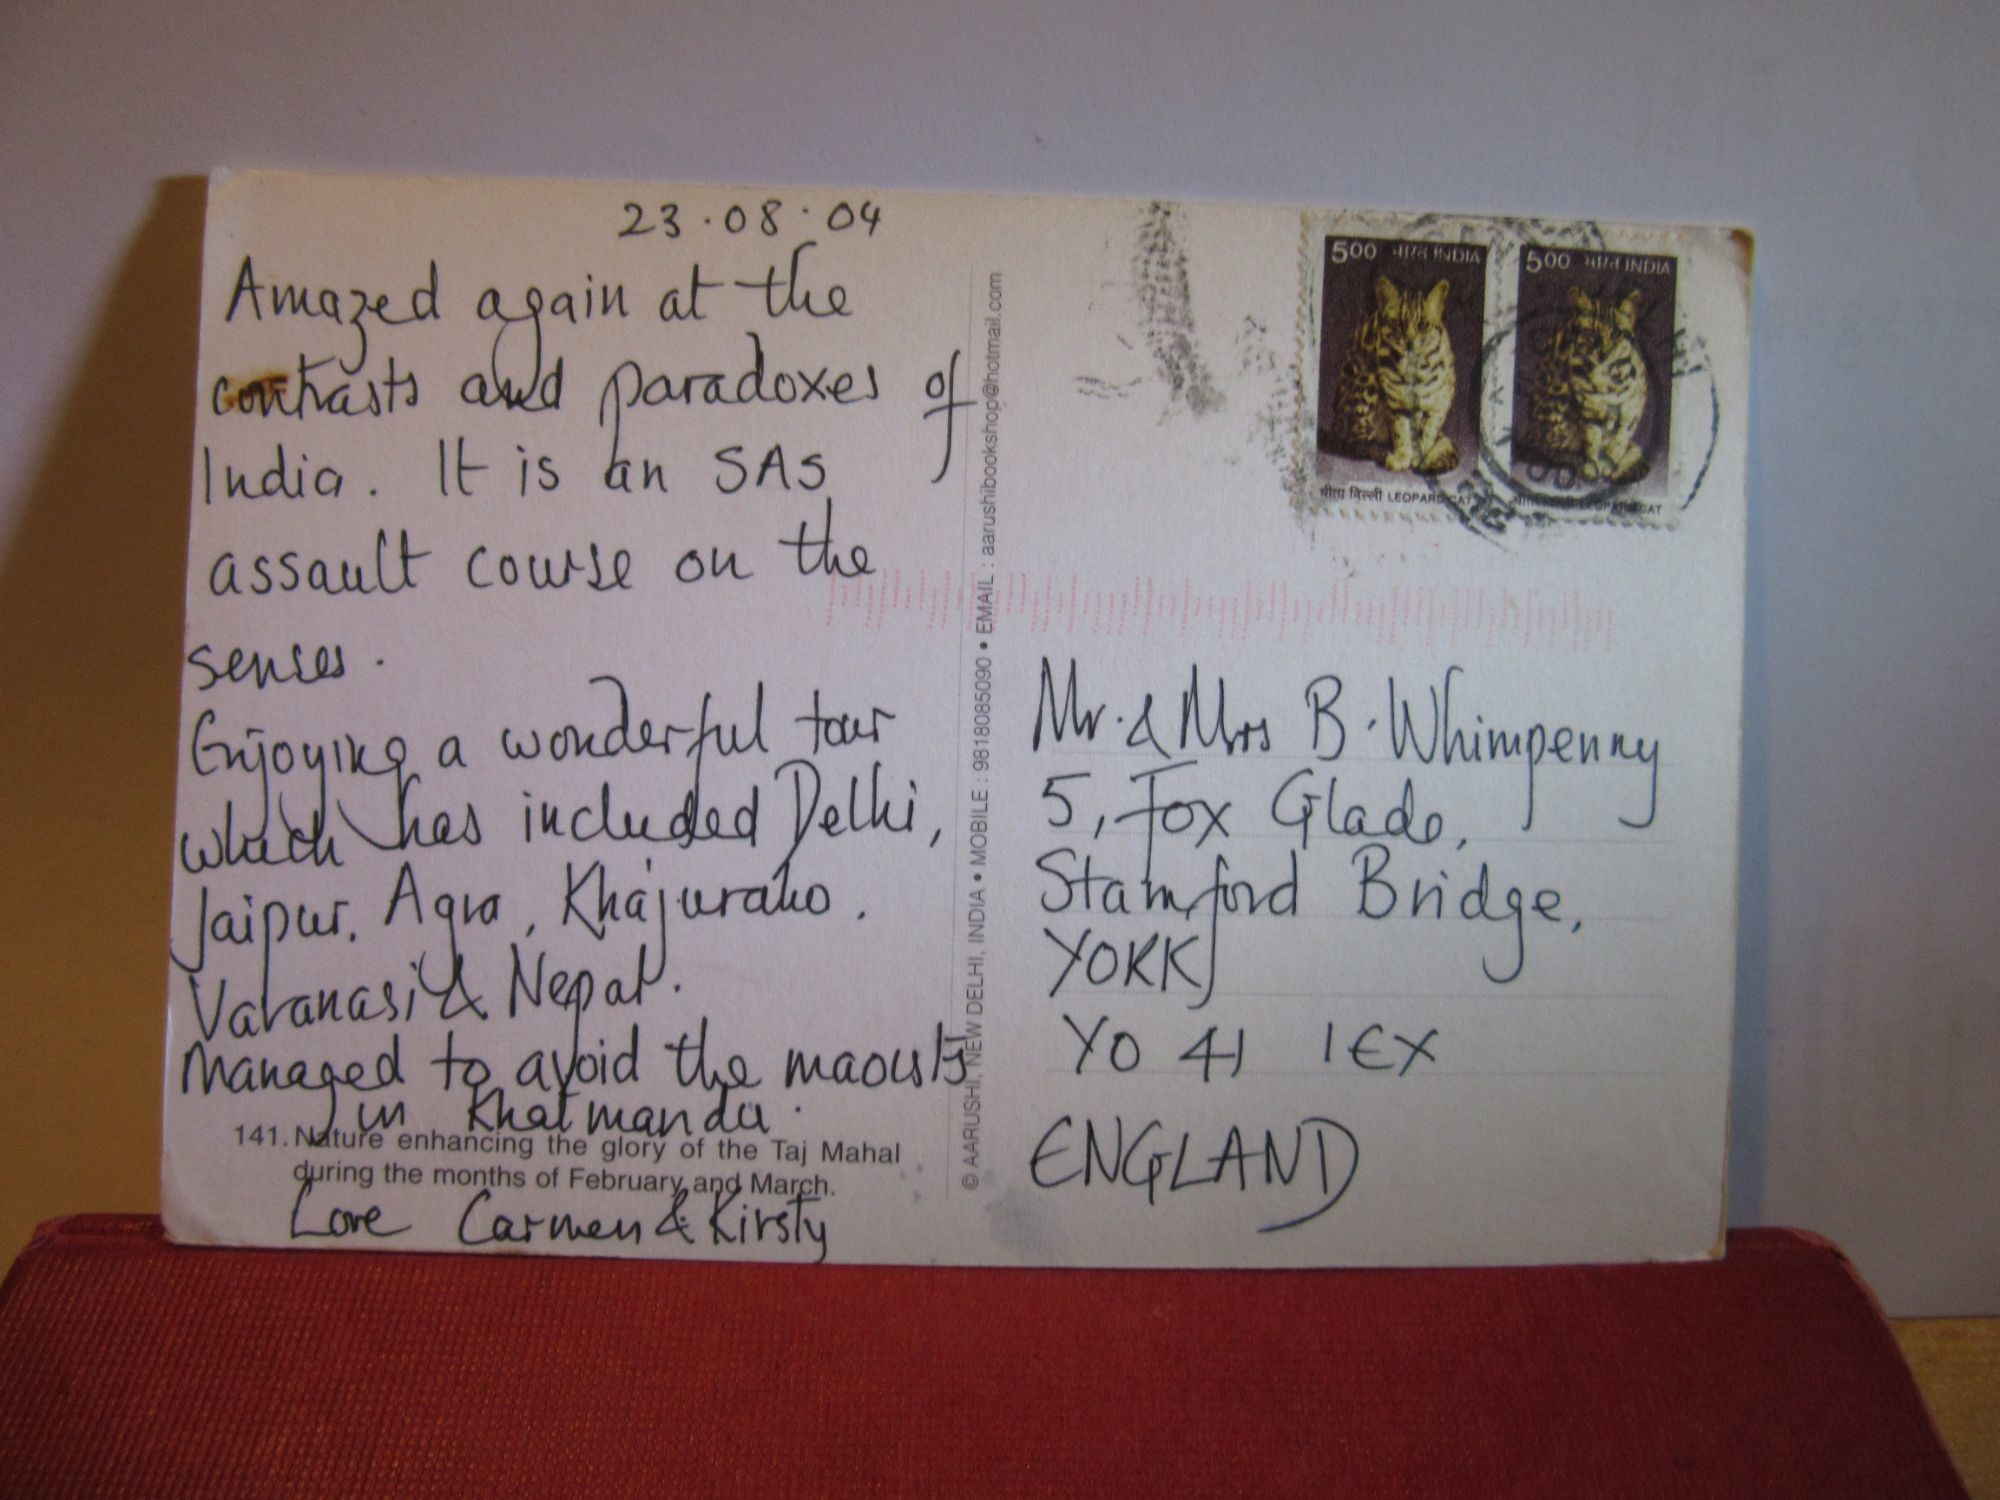 23.08.04
Amazed again at the
contrasts and paradoxes of
India. It is an SAS
assault course on the
senses.
Enjoying a wonderful tour
which has included Delhi,
Jaipur, Agra, Khajuraho,
Varanasi & Nepal.
Managed to avoid the maoists
in Khatmandu.
141. Nature enhancing the glory of the Taj Mahal
during the months of February and March.
Love Carmen & Kirsty
© AARUSHI, NEW DELHI, INDIA • MOBILE : 9818085090 • EMAIL : aarushibookshop@hotmail.com
500 भारत INDIA
चीता बिल्ली LEOPARD CAT
500 भारत INDIA
LEOPARD CAT
Mr. & Mrs B. Whimpenny
5, Fox Glade,
Stamford Bridge,
YORK
YO 41 1EX
ENGLAND